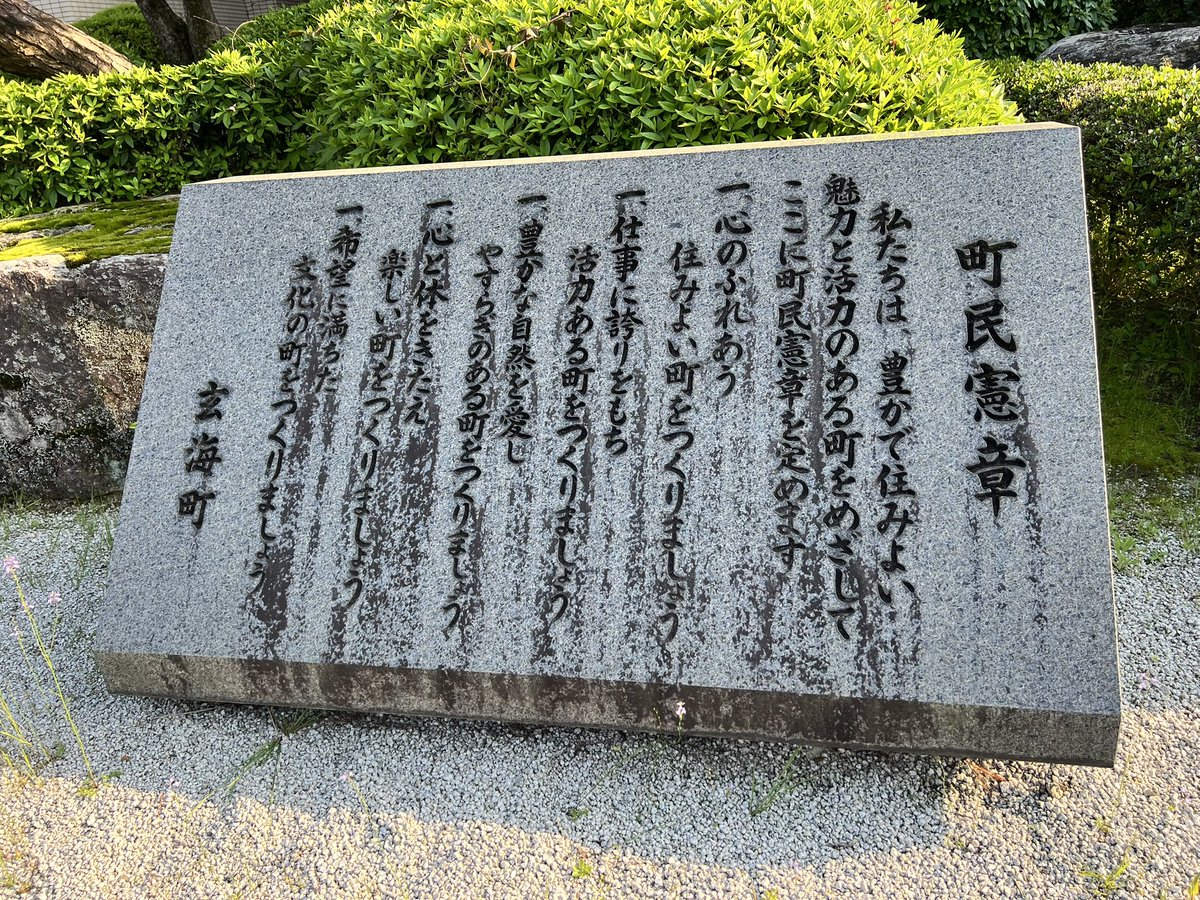 町民憲章
私たちは、豊かで住みよい
魅力と活力のある町をめざして
ここに町民憲章を定めます
一、心のふれあう
住みよい町をつくりましょう
一、仕事に誇りをもち
活力ある町をつくりましょう
一、豊かな自然を愛し
やすらぎのある町をつくりましょう
一、心と体をきたえ
楽しい町をつくりましょう
一、希望に満ちた
文化の町をつくりましょう
玄海町